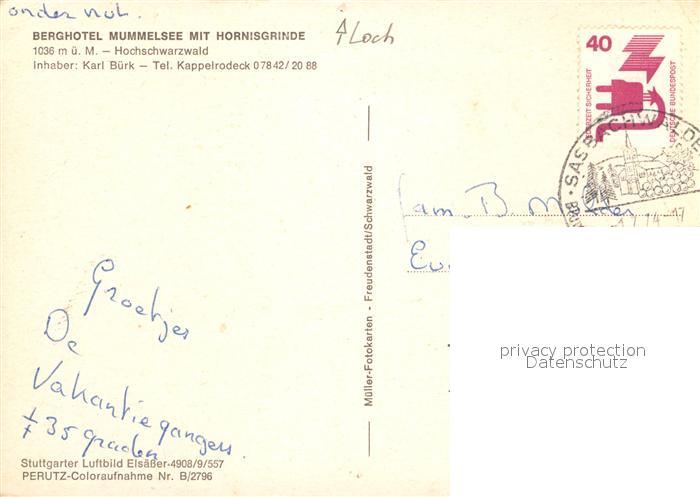 onder nul.
BERGHOTEL MUMMELSEE MIT HORNISGRINDE
1036 m ü. M. – Hochschwarzwald
Inhaber: Karl Bürk – Tel. Kappelrodeck 0 78 42 / 20 88
Loch
40
JEDERZEIT SICHERHEIT
DEUTSCHE BUNDESPOST
SASBACHWALDE
74-17
Fam. B.
Müller-Fotokarten - Freudenstadt/Schwarzwald
privacy protection
Datenschutz
Groetjes
De
Vakantiegangers
± 35 graden
Stuttgarter Luftbild Elsäßer-4908/9/557
PERUTZ-Coloraufnahme Nr. B/2796